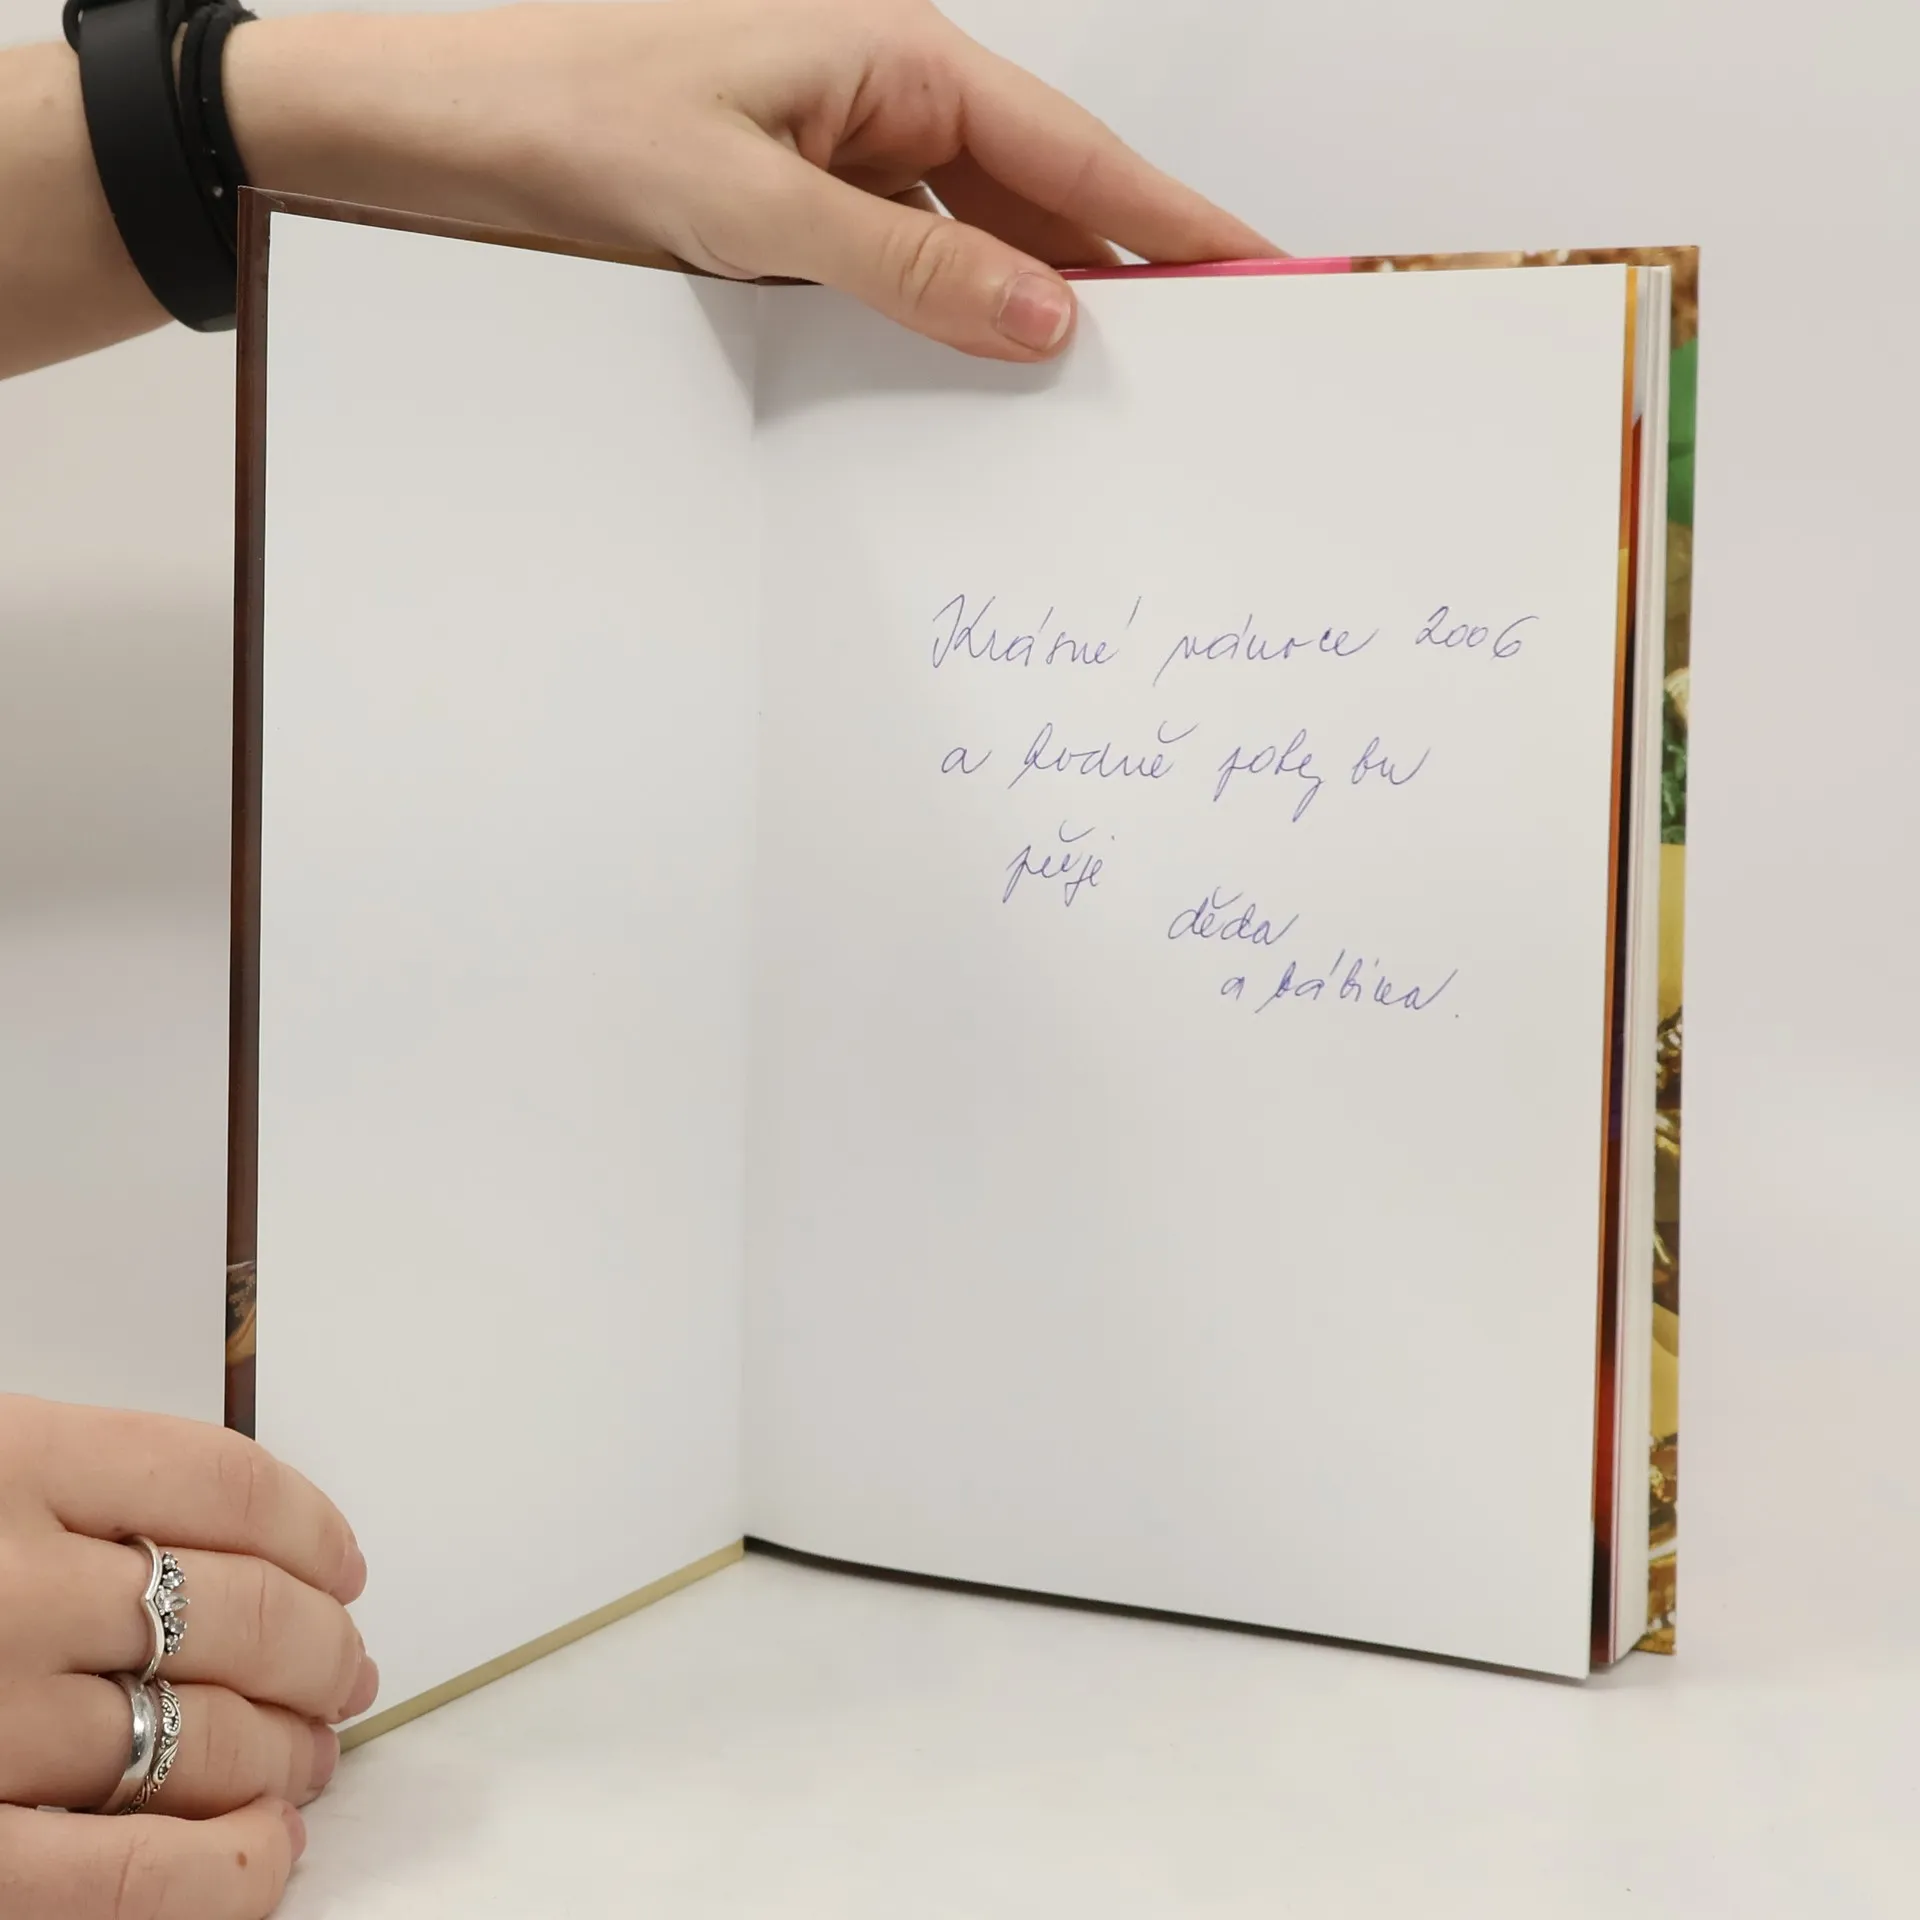 Krásné vánoce 2006
a hodně pohybu
přeje
děda
a babička.